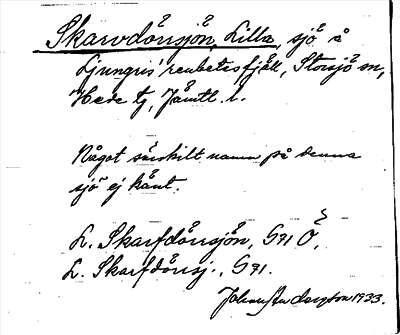 Skarvdörsjön, Lilla, sjö å
Ljungris' renbetesfjäll, Storsjö sn,
Hede tg, Jämtl. l.
Något särskilt namn på denna
sjö ej känt.
L. Skarfdörsjön, G91 Ö,
L. Skarfdörsj., G91.
1933.